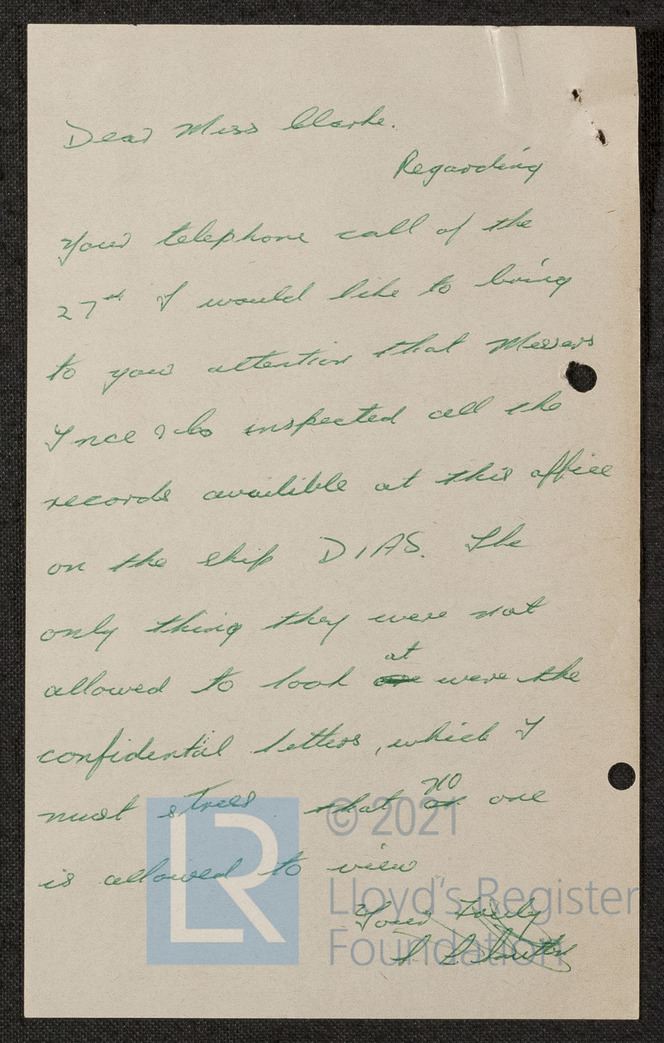 Dear Miss Clarke.
Regarding
your telephone call of the
27th I would like to bring
to your attention that Messers
Ince & Co inspected all the
records availible at this office
on the ship DIAS. The
only thing they were not
allowed to look at were the
confidential letters, which I
must stress that no one
is allowed to view
Yours Truly
© 2021
LR
Lloyd's Register
Foundation